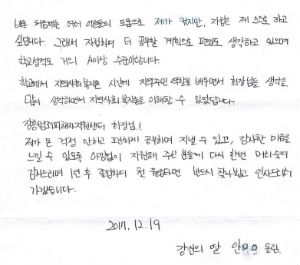 처음에는 여러 이름들의 도움으로 제가 컸지만, 지금은 제 스스로 하고
싶습니다. 그래서 자립하며 더 공부할 계획으로 편입도 생각하고 있으며
학교성적도 거의 A이상 수준이랍니다.
학교에서 지역사회복지론 시간에 지역주민 역할을 배우면서 회장님을 생각을
많이 생각하면서 지역사회 복지론을 이해할 수 있었답니다.
회장님!
제가 돈 걱정 안하고 편하게 공부하며 지낼 수 있고, 감사한 마음을
느낄 수 있도록 아낌없이 지원해 주신 분들께 다시 한번 머리숙여
감사드리며 1년 후 졸업하여 첫 월급타면 반드시 찾아뵙고 인사드리러
가겠습니다.
2017. 12. 19
의 딸 안 올림